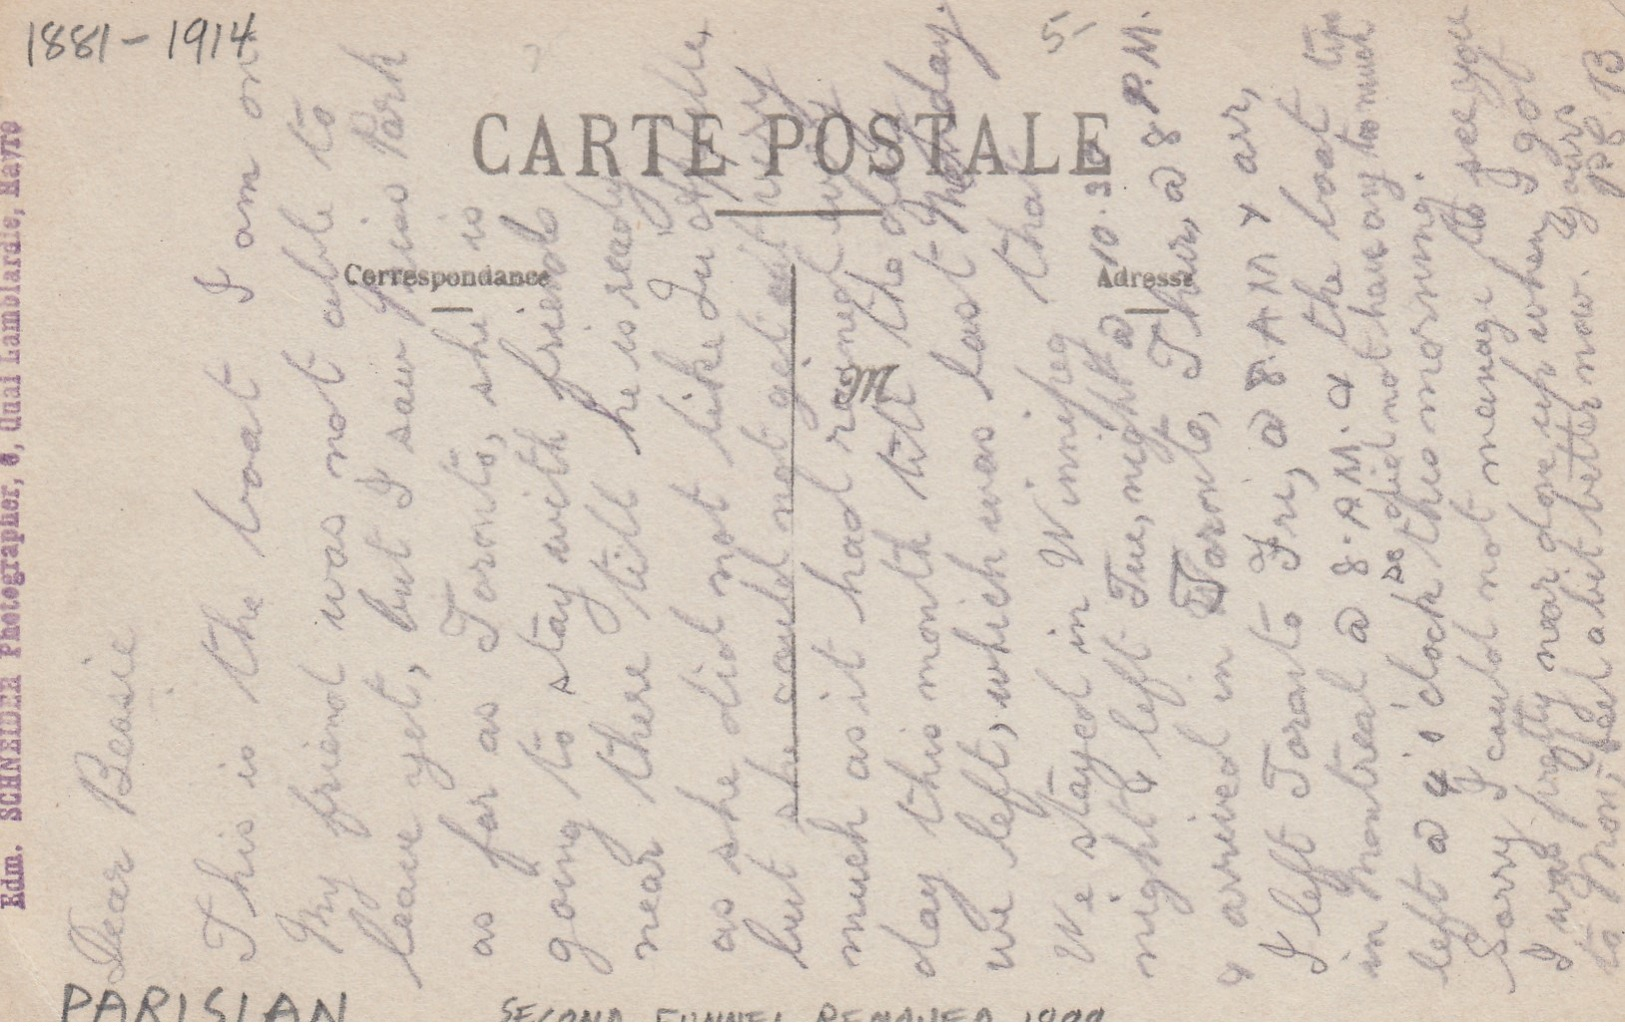 1881-1914
5-
CARTE POSTALE
Correspondance
Adresse
M
Edm. SCHNEIDER Photographer, 6, Quai Lamblardie, Havre
Dear Beasie
This is the boat I am on
My friend was not able to
leave yet, but I saw him Park
as far as Toronto, she is
going to stay with friends
near there till he is ready
as she did not like
but she could not get out very
much as it had rained every
day this month till the day
we left, which was last Monday.
We stayed in Winnipeg that
night & left Tue, night @ 10.30
& arrived in Toronto, Thur, @ 8 P.M.
I left Toronto Fri, @ 8.AM & arr,
in Montreal @ 8.AM. @ the boat
so did not have any to much
left @ 4 o'clock this morning.
Sorry I could not manage to see you
I was pretty near done up when I got
to Mon, feel a bit better now. Yours
B
PARISIAN
SECOND FUNNEL REMOVED 1899